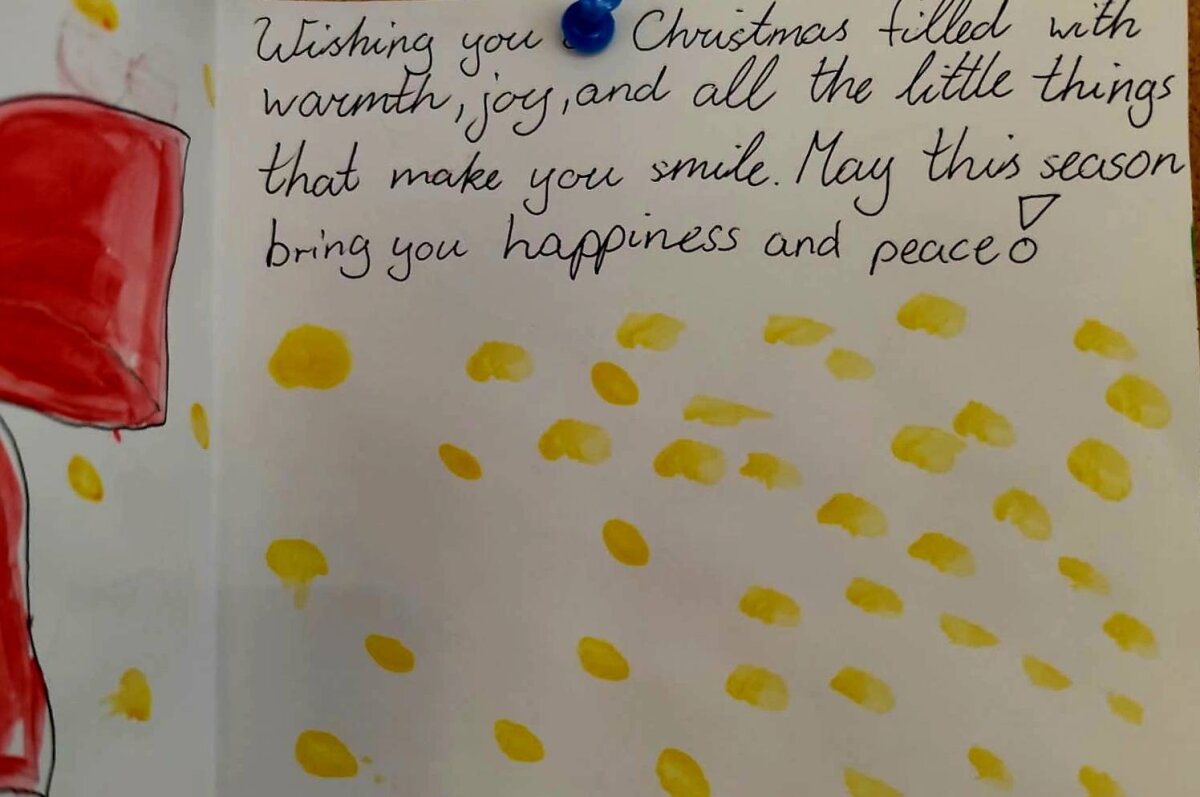 Wishing you Christmas filled with
warmth, joy, and all the little things
that make you smile. May this season
bring you happiness and peace!